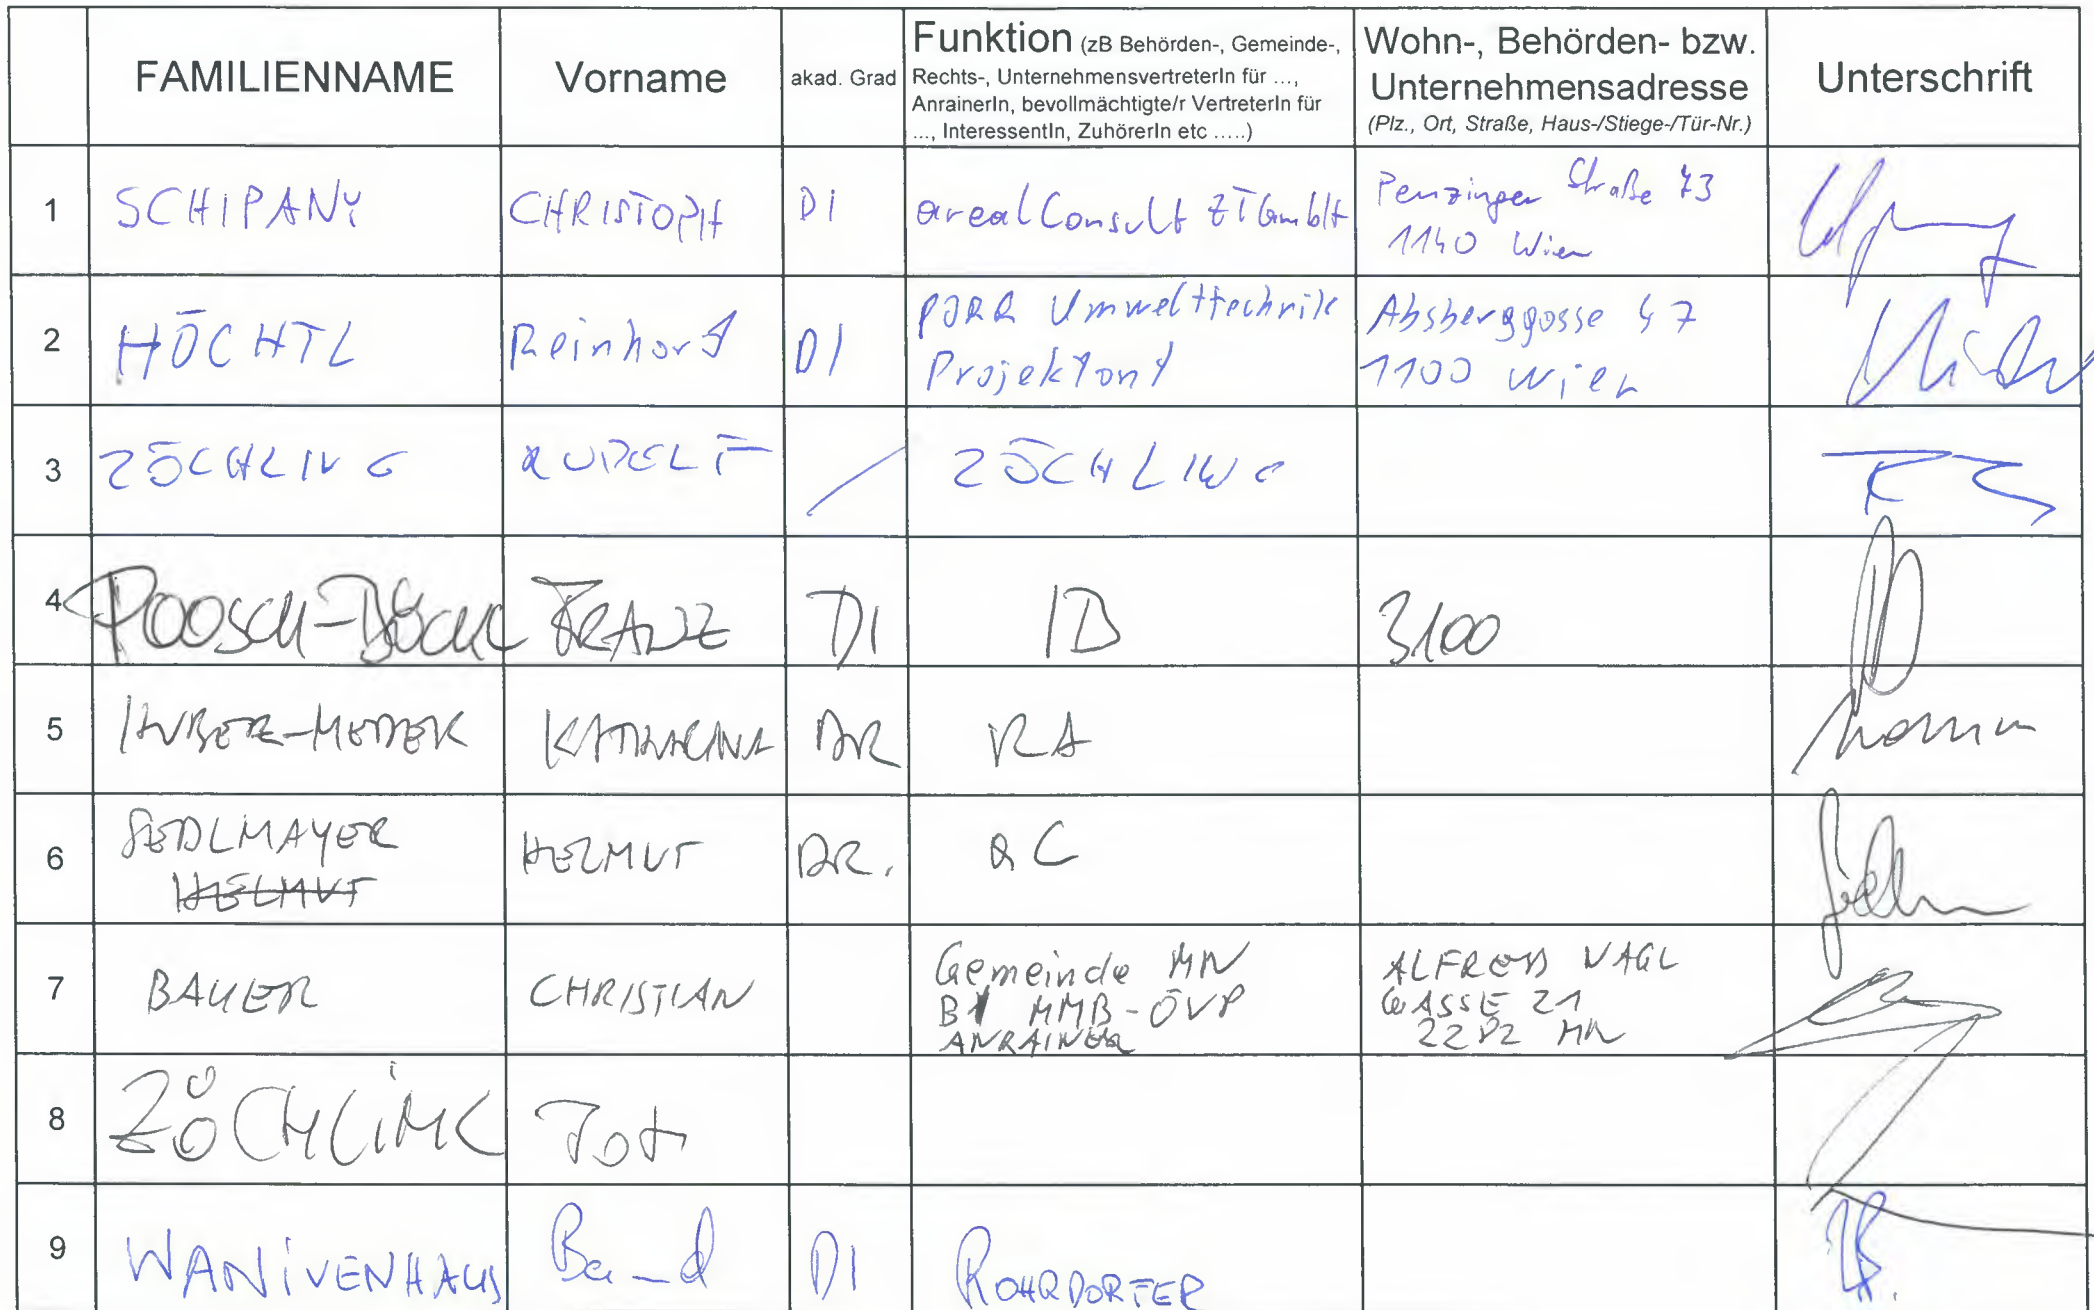 FAMILIENNAME
Vorname
akad. Grad
Funktion (zB Behörden-, Gemeinde-,
Rechts-, UnternehmensvertreterIn für ...,
AnrainerIn, bevollmächtigte/r VertreterIn für
..., InteressentIn, ZuhörerIn etc .....)
Wohn-, Behörden- bzw.
Unternehmensadresse
(Plz., Ort, Straße, Haus-/Stiege-/Tür-Nr.)
Unterschrift
1
SCHIPANY
CHRISTOPH
DI
arealConsult ZTGmbH
Penzinger Straße 73
1140 Wien
2
HÖCHTL
Reinhard
DI
PORR Umwelttechnik
Projektant
Absberggasse 47
1100 Wien
3
ZÖCHLING
RUDOLF
ZÖCHLING
4
FRANZ
DI
3100
5
HUBER-MEDEK
KATHARINA
DR
RA
6
SEDLMAYER
HELMUT
HELMUT
DR.
7
BAUER
CHRISTIAN
Gemeinde MN
MMB-ÖVP
ANRAINER
ALFRED NAGL
GASSE 21
2282 MN
8
ZÖCHLING
9
WANIVENHAUS
DI
ROHRDORFER